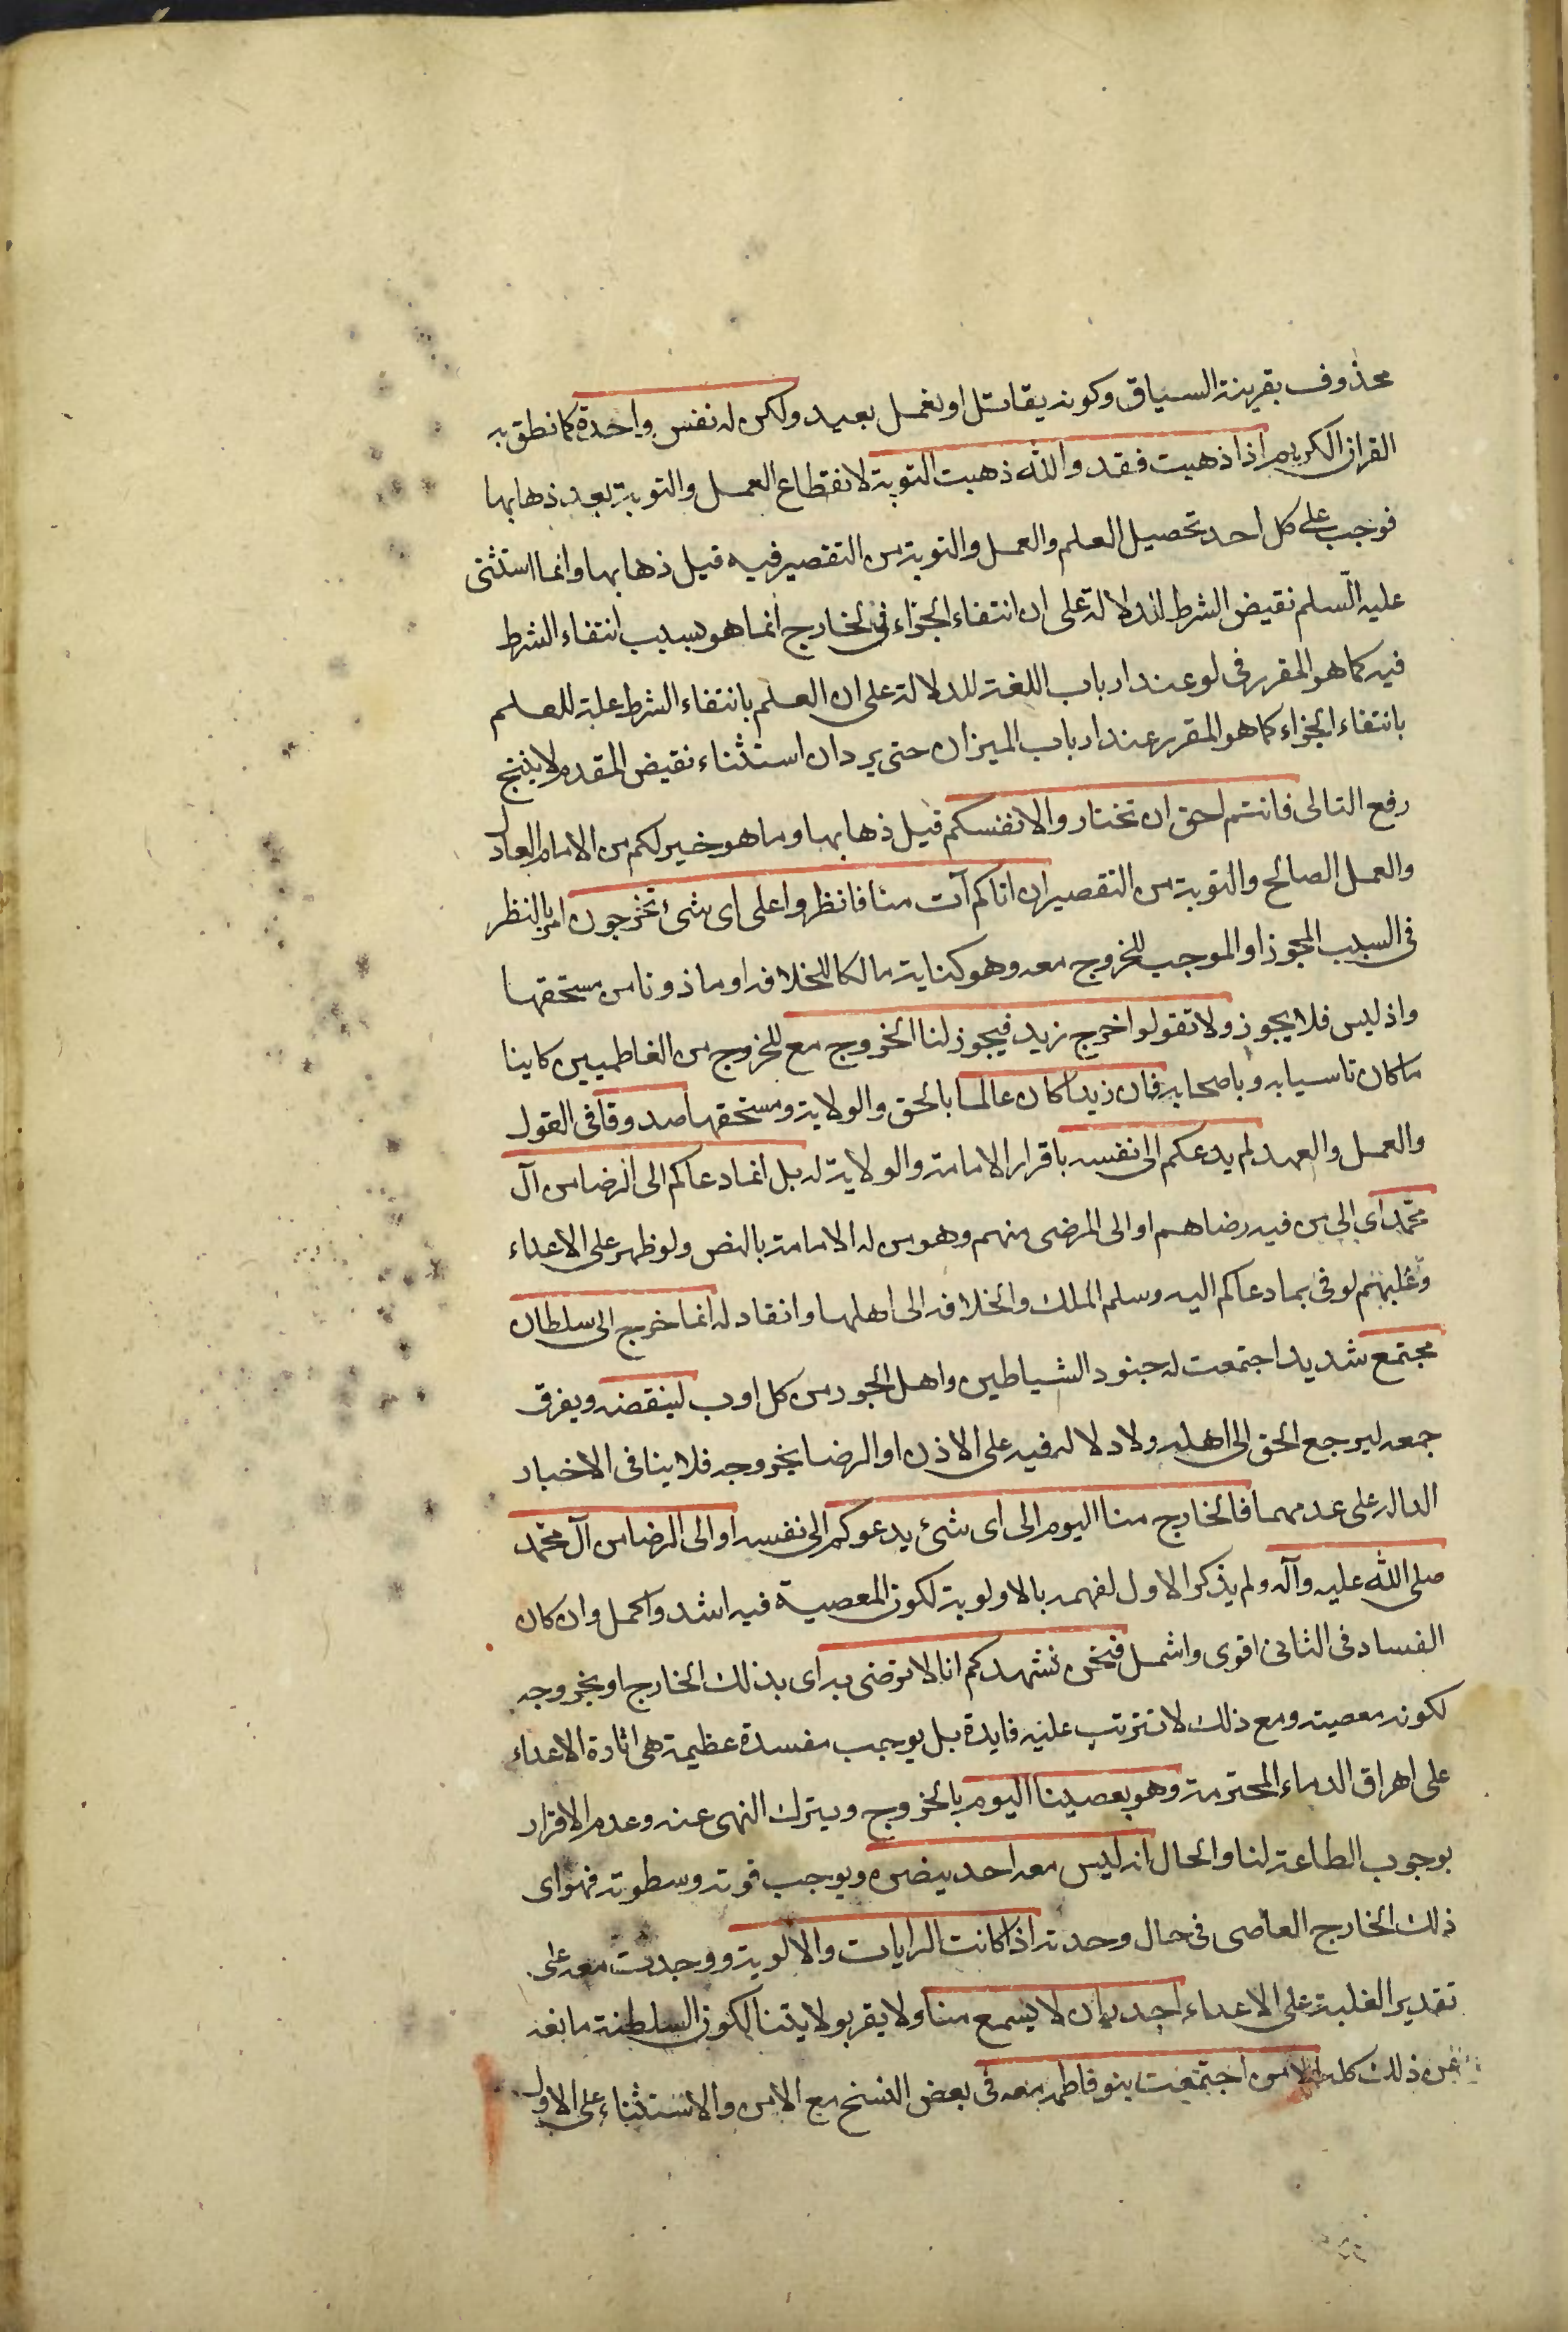 محذوف بقرينة السياق وكونه يقاتل او يعمل بعيد ولكن له نفس واحدة كما نطق به
القران الكريم اذا ذهبت فقد والله ذهبت التوبة لانقطاع العمل والتوبة بعد ذهابها
فوجب على كل احد تحصيل العلم والعمل والتوبة من التقصير فيه قبل ذهابها وانما استثنى
عليه السّلم نقيض الشرط للدلالة على ان انتفاء الجزاء فى الخارج انما هو بسبب انتفاء الشرط
فيه كما هو المقرر فى لو عند ارباب اللغة للدلالة على ان العلم بانتفاء الشرط علة للعلم
بانتفاء الجزاء كما هو المقرر عند ارباب الميزان حتى يرد ان استثناء نقيض المقدم لا ينتج
رفع التالى فانتم احق ان تختاروا لانفسكم قبل ذهابها وما هو خير لكم من الامام العادل
والعمل الصالح والتوبة من التقصير ان اتاكم آت منا فانظروا على اى شئ تخرجون امر بالنظر
فى السبب المجوز او الموجب للخروج معه وهو كناية مالكا للخلافه او ماذونا من مستحقها
واذ ليس فلا يجوز ولا تقولوا خرج زيد فيجوز لنا الخروج مع للخروج من الفاطميين كاينا
ما كان تاسيا به وباصحابه فان زيدا كان عالما بالحق والولاية ومستحقها صدوقا فى القول
والعمل والعهد لم يدعكم الى نفسه باقرار الامامة والولاية له بل انما دعاكم الى الرضا من آل
محمّد اى الى من فيه رضاهم او الى المرضى منهم وهو من له الامامة بالنص ولو ظهر على الاعداء
وغلبهم لوفى بما دعاكم اليه وسلم الملك والخلافه الى اهلها وانقاد له انما خرج الى سلطان
مجتمع شديد اجتمعت له جنود الشياطين واهل الجور من كل اوب لينقضه ويفرق
جمعه ليرجع الحق الى اهله ولا دلاله فيه على الاذن او الرضا بخروجه فلا ينافى الاخبار
الداله على عدمهما فالخارج منا اليوم الى اى شئ يدعوكم الى نفسه او الى الرضا من آل محمّد
صلى الله عليه وآله ولم يذكر الاول لفهمه بالاولوية لكون المعصية فيه اشد واكمل وان كان
الفساد فى الثانى اقوى واشمل فنحن نشهدكم انا لا نرضى به اى بذلك الخارج او بخروجه
لكونه معصيته ومع ذلك لا تترتب عليه فايدة بل يوجب مفسدة عظيمة هى اثارة الاعداء
على اهراق الدماء المحترمة وهو يعصينا اليوم بالخروج وبترك النهى عنه وعدم الاقرار
بوجوب الطاعة لنا والحال انه ليس معه احد ينصره ويوجب قوته وسطوته فهو اى
ذلك الخارج العاصى فى حال وحدته اذا كانت الرايات والالوية ووجدت معه على
تقدير الغلبة على الاعداء اجدر بان لا يسمع منا ولا يقر بولايتنا لكون السلطنة مانعه
عن ذلك كله الا من اجتمعت بنو فاطمه معه فى بعض النسخ مع الامن والاستثناء على الاول